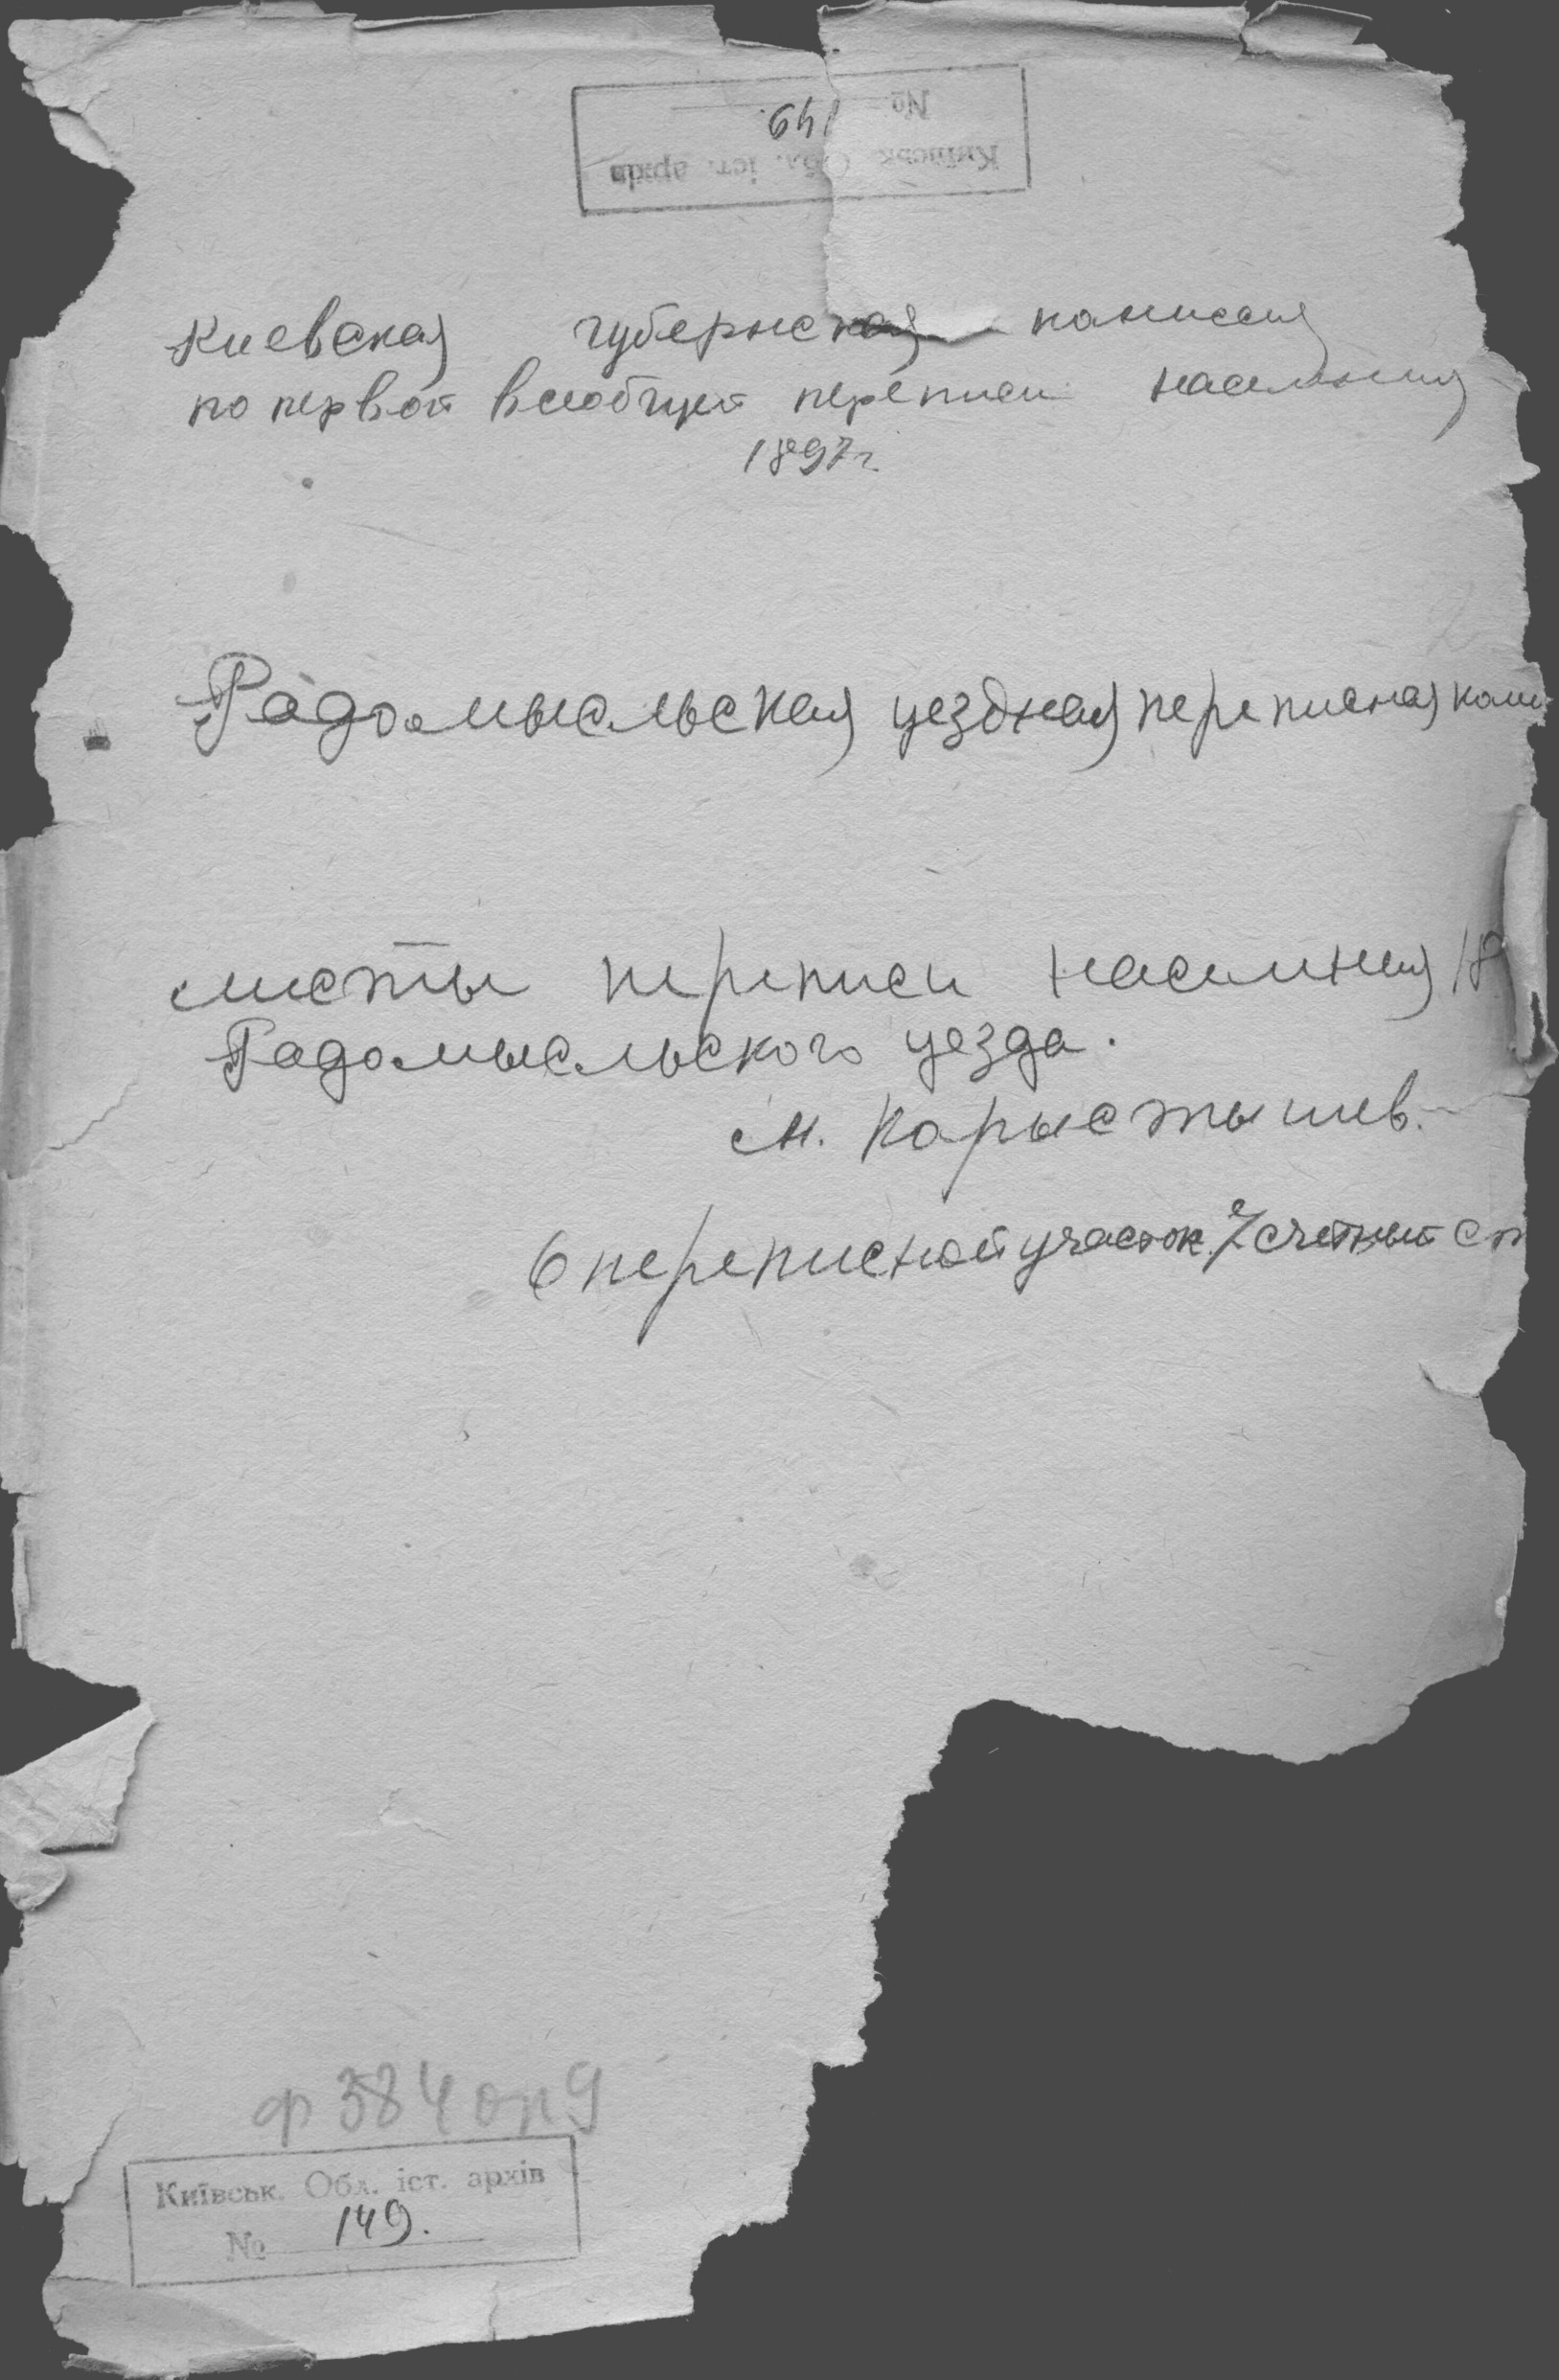 № 149.
Київськ. Обл. іст. архів
Киевская губернская комиссия
по первой всеобщей переписи населения
1897 г.
Радомысльская уездная переписная коми
листы переписи населения 18
Радомысльского уезда.
м. Карыстышев.
6 переписной участок 7 счетный
ф 384 оп 9
Київськ. Обл. іст. архів
№ 149.